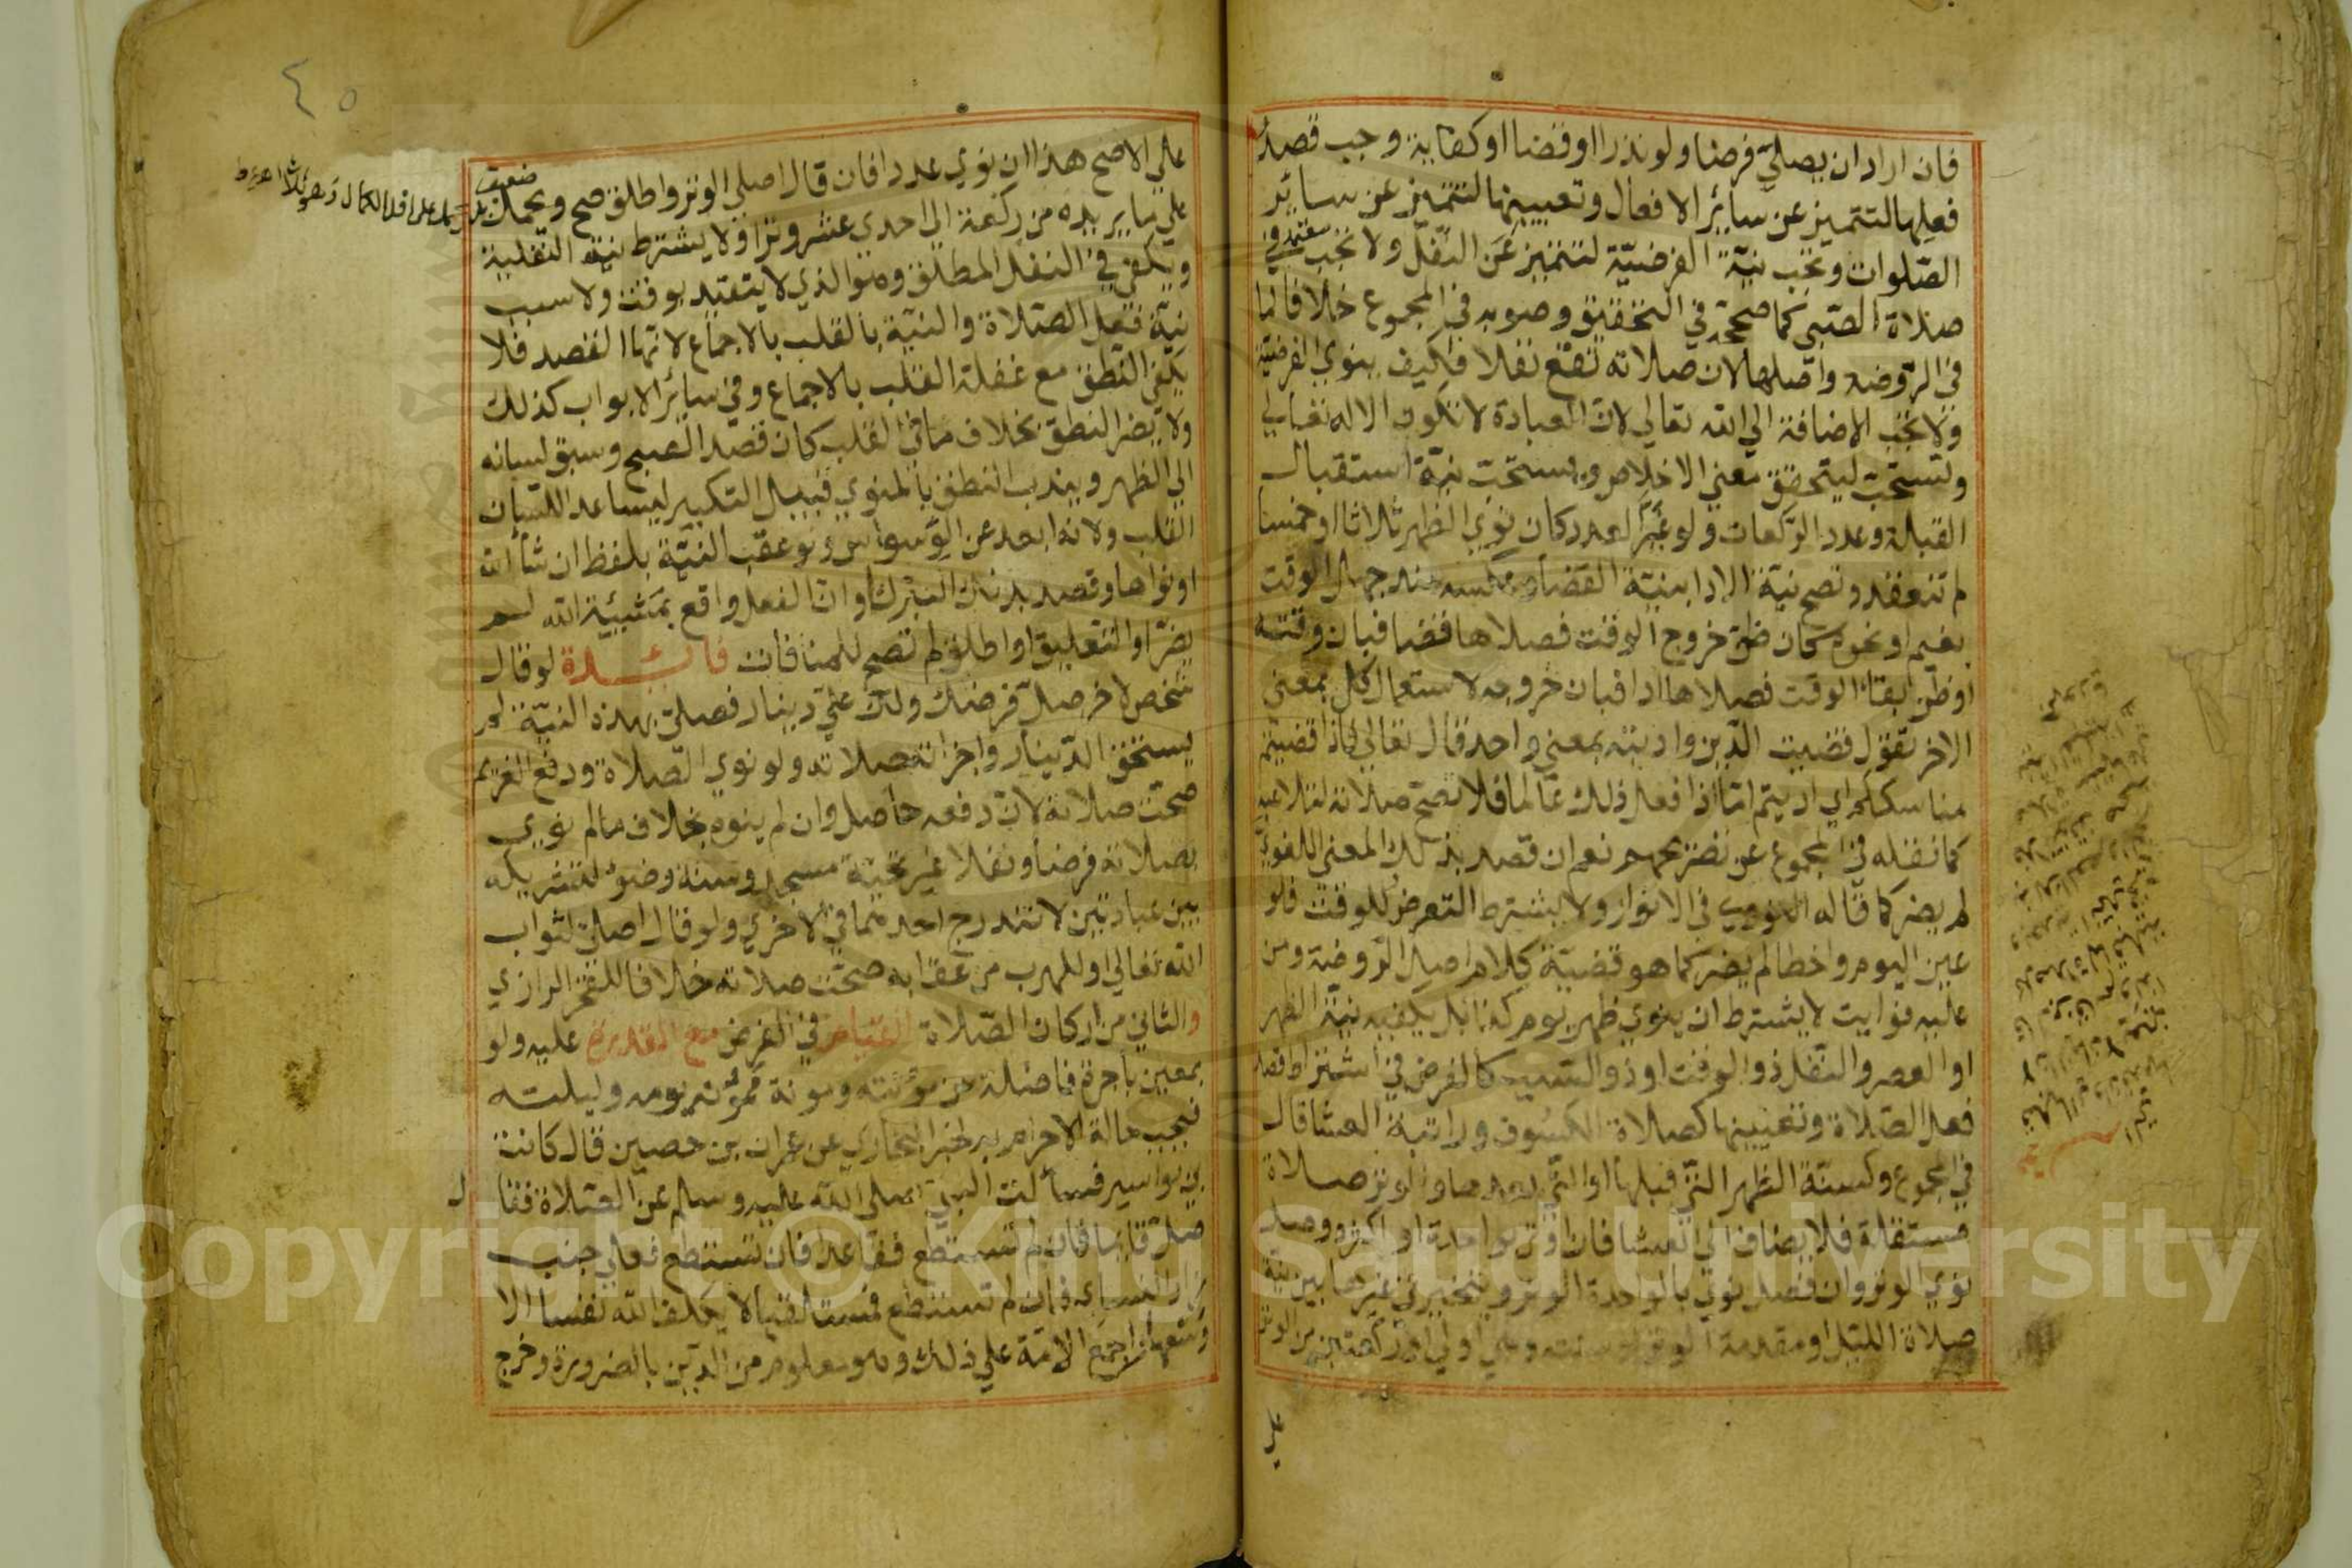 فان اراد ان يصلي فرضا ولو نذرا او قضا او كفاية وجب قصد
فعلها لتتميز عن سائر الافعال وتعيينها لتتميز عن سائر
الصلوات وتجب نية الفرضية لتتميز عن النفل ولا تجب في
معتمد
صلاة الصبي كما صححه في التحقيق وصوبه في المجموع خلافا لما
في الروضة واصلها لان صلاته تقع نفلا فكيف ينوي الفرضية
ولا تجب الاضافة الي الله تعالي لان العبادة لا تكون الا له تعالي
وتستحب ليتحقق معني الاخلاص وتستحب نية استقبال
القبلة وعدد الركعات ولو غير العدد كان نوي الظهر ثلاثا او خمسا
لم تنعقد وتصح نية الادا بنية القضا وعكسه عند جهل الوقت
بغيم او نحوه كان ظن خروج الوقت فصلاها قضا فبان وقته
او ظن بقاء الوقت فصلاها ادا فبان خروجه لاستعمال كل بمعني
الاخر تقول قضيت الدين واديته بمعني واحد قال تعالي فاذا قضيتم
مناسككم اي اديتم اما اذا فعل ذلك عالما فلا تصح صلاته لتلاعبه
كما نقله في المجموع عن تصريحهم نعم ان قصد بذلك المعني اللغوي
لم يضر كما قاله النووي في الانوار ولا يشترط التعرض للوقت فلو
عين اليوم واخطا لم يضر كما هو قضية كلام اصل الروضة ومن
عليه فوايت لا يشترط ان ينوي ظهر يوم كذا بل يكفيه نية الظهر
او العصر والنفل ذو الوقت او ذو السبب كالفرض في اشتراط قصد
فعل الصلاة وتعيينها كصلاة الكسوف وراتبة العشا قال
في المجموع وكسنة الظهر التي قبلها او التي بعدها والوتر صلاة
مستقلة فلا يضاف الي العشا فان اوتر بواحدة او اكثر ووصل
نوي الوتر وان فصل نوي بالواحدة الوتر ويتخير في غيرها بين نية
صلاة الليل او مقدمة الوتر او سنته وهي اولي او ركعتين من الوتر
علي
٤٥
علي الاصح هذا ان نوي عددا فان قال اصلي الوتر واطلق صح ويحمل
ضعيف
علي ما يريده من ركعة الي احدي عشر وترا ولا يشترط نية النفلية
ويكفي في النفل المطلق وهو الذي لا يتقيد بوقت ولا سبب
نية فعل الصلاة والنية بالقلب بالاجماع لانها القصد فلا
يكفي النطق مع غفلة القلب بالاجماع وفي سائر الابواب كذلك
ولا يضر النطق بخلاف ما في القلب كان قصد الصبح وسبق لسانه
الي الظهر ويندب النطق بالمنوي قبيل التكبير ليساعد اللسان
القلب ولانه ابعد عن الوسواس ولو عقب النية بلفظ ان شاء الله
او نواها وقصد بذلك التبرك او ان الفعل واقع بمشيئة الله لم
يضر او التعليق او اطلق لم تصح للمنافات فائدة لو قال
شخص لاخر صل فرضك ولك علي دينار فصلي بهذه النية لم
يستحق الدينار واجزاته صلاته ولو نوي الصلاة ودفع الغريم
صحت صلاته لان دفعه حاصل وان لم ينوه بخلاف ما لم نوي
بصلاته فرضا ونفلا غير تحية مسجد وسنة وضوء لتشريكه
بين عبادتين لا تندرج احدهما في الاخري ولو قال اصلي لثواب
الله تعالي او للهرب من عقابه صحت صلاته خلافا للفخر الرازي
والثاني من اركان الصلاة القيام في الفرض مع القدرة عليه ولو
بمعين باجرة فاضلة عن مؤنته ومونة ممونه يومه وليلته
فيجب حالة الاحرام به لخبر البخاري عن عمران بن حصين قال كانت
بي بواسير فسألت النبي صلي الله عليه وسلم عن الصلاة فقال
صل قائما فان لم تستطع فقاعدا فان تستطع فعلي جنب
زاد النسائي فان لم تستطع فمستلقيا لا يكلف الله نفسا الا
وسعها واجمع الامة علي ذلك وهو معلوم من الدين بالضرورة وخرج
Copyright © King Saud University